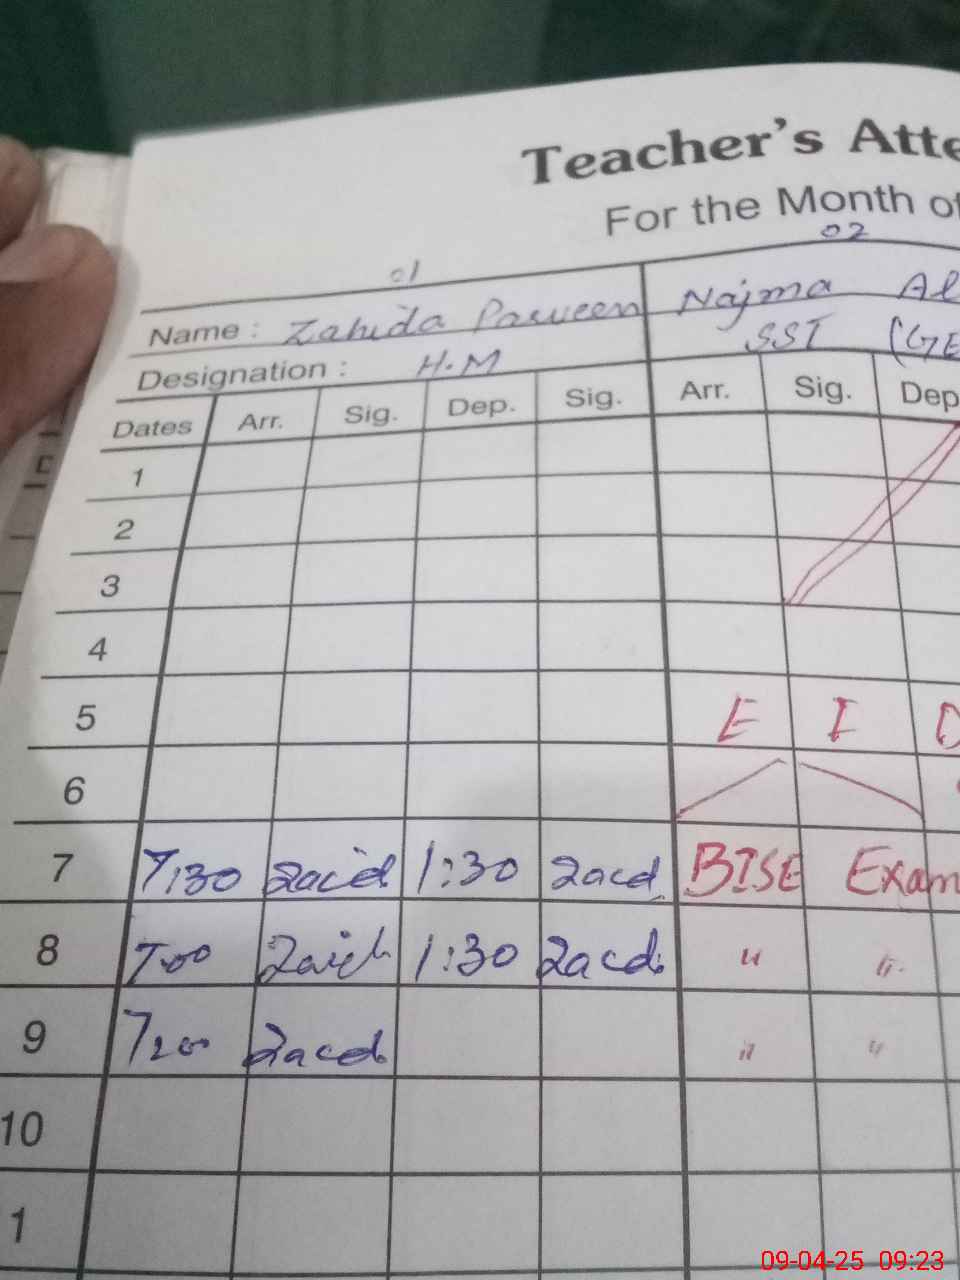 Teacher's Atte
For the Month of
01 02
Name : Zahida Parveen Najma Al
Designation : H.M SST (GE
Dates Arr. Sig. Dep. Sig. Arr. Sig. Dep
1
2
3
4
5 E I D
6
7 7:30 1:30 BISE Exam
8 7:00 1:30 " "
9 " "
10
1
09-04-25 09:23